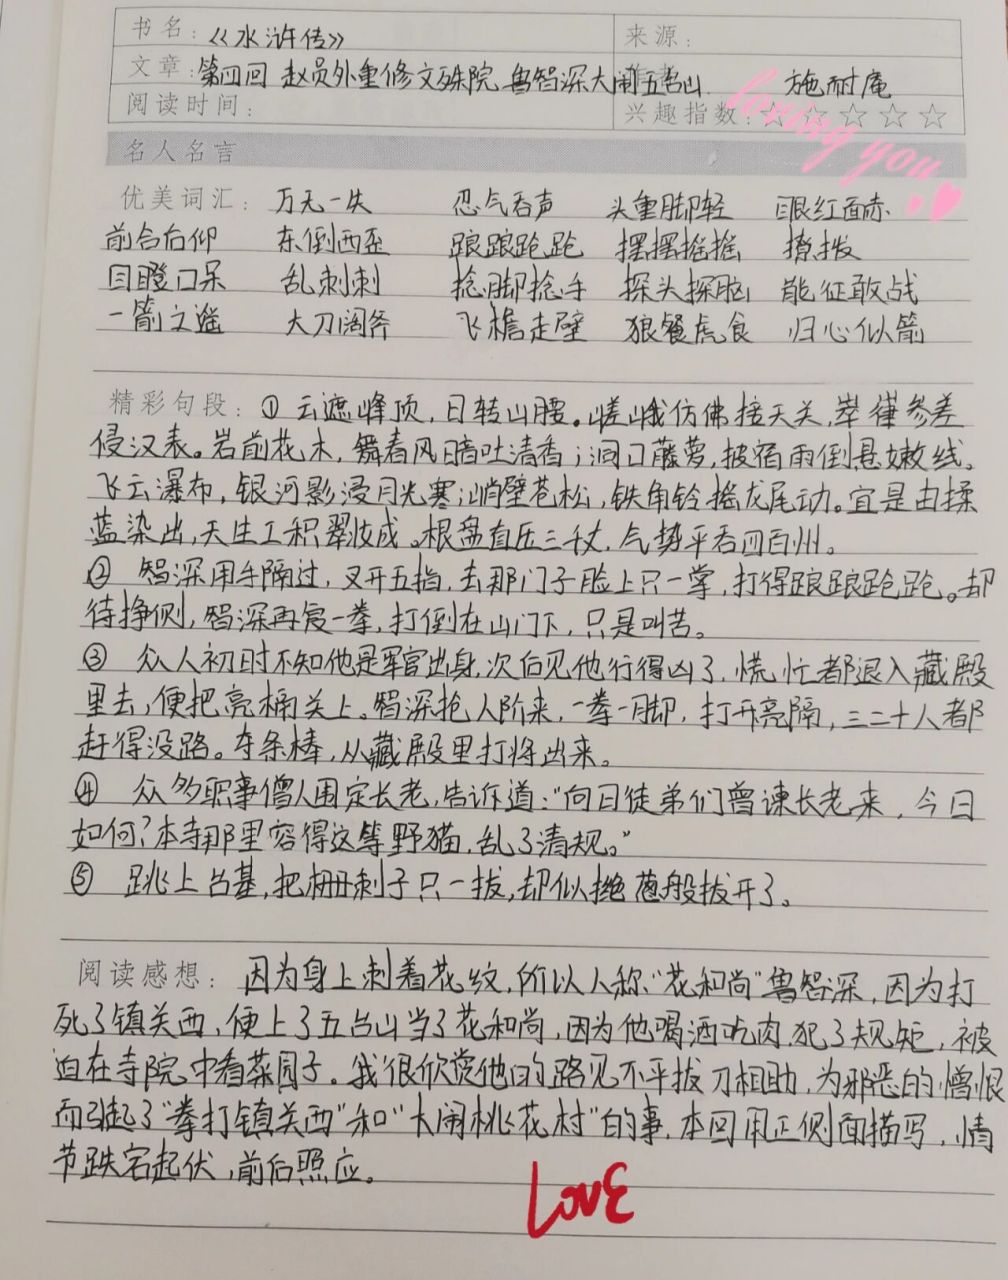 书名：《水浒传》 来源：
文章：第四回 赵员外重修文殊院 鲁智深大闹五台山 施耐庵
阅读时间： 兴趣指数：☆☆☆☆☆
loving you
名人名言
优美词汇： 万无一失 忍气吞声 头重脚轻 眼红面赤
前合后仰 东倒西歪 踉踉跄跄 摆摆摇摇 撩拨
目瞪口呆 乱刺刺 捻脚捻手 探头探脑 能征敢战
一箭之遥 大刀阔斧 飞檐走壁 狼餐虎食 归心似箭
精彩句段：① 云遮峰顶，日转山腰。嵯峨仿佛接天关，崒嵂参差
侵汉表。岩前花木，舞春风暗吐清香；洞口藤萝，披宿雨倒悬嫩线。
飞云瀑布，银河影浸月光寒；峭壁苍松，铁角铃摇龙尾动。宜是由揉
蓝染出，天生工积翠妆成。根盘直压三千丈，气势平吞四百州。
② 智深用手隔过，叉开五指，去那门子脸上只一掌，打得踉踉跄跄。却
待挣侧，智深再复一拳，打倒在山门下，只是叫苦。
③ 众人初时不知他是军官出身，次后见他行得凶了，慌忙都退入藏殿
里去，便把亮桶关上。智深抢入阶来，一拳一脚，打开亮隔，三二十人都
赶得没路。夺条棒，从藏殿里打将出来。
④ 众多职事僧人围定长老，告诉道：“向日徒弟们曾谏长老来，今日
如何？本寺那里容得这等野猫，乱了清规。”
⑤ 跳上台基，把栅剌子只一拔，却似撧葱般拔开了。
阅读感想： 因为身上刺着花纹，所以人称“花和尚”鲁智深，因为打
死了镇关西，便上了五台山当了花和尚，因为他喝酒吃肉，犯了规矩，被
迫在寺院中看菜园子。我很欣赏他的路见不平拔刀相助，为邪恶的憎恨
而引起了“拳打镇关西”和“大闹桃花村”的事，本回用正侧面描写，情
节跌宕起伏，前后照应。
LOVE